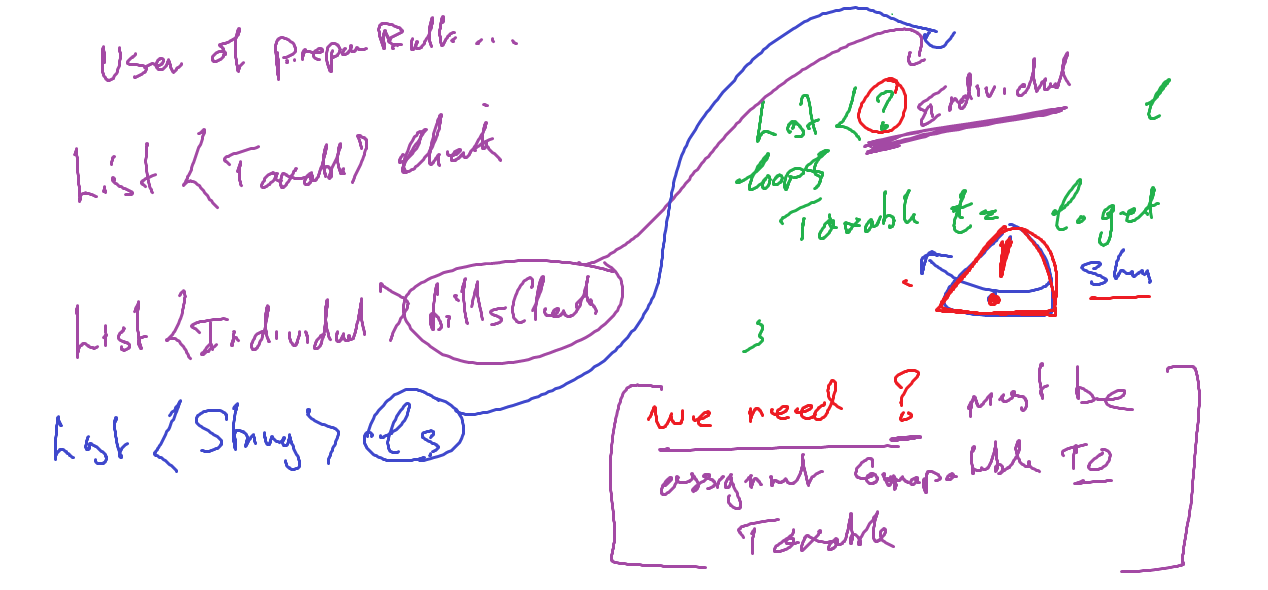 User of prepare Bulk...
List <Taxable> Client
List <Individual> billsClients
List <String> ls
List <? Individual l
loops
Taxable t = l.get
! String
}
we need ? must be
assignment compatable TO
Taxable